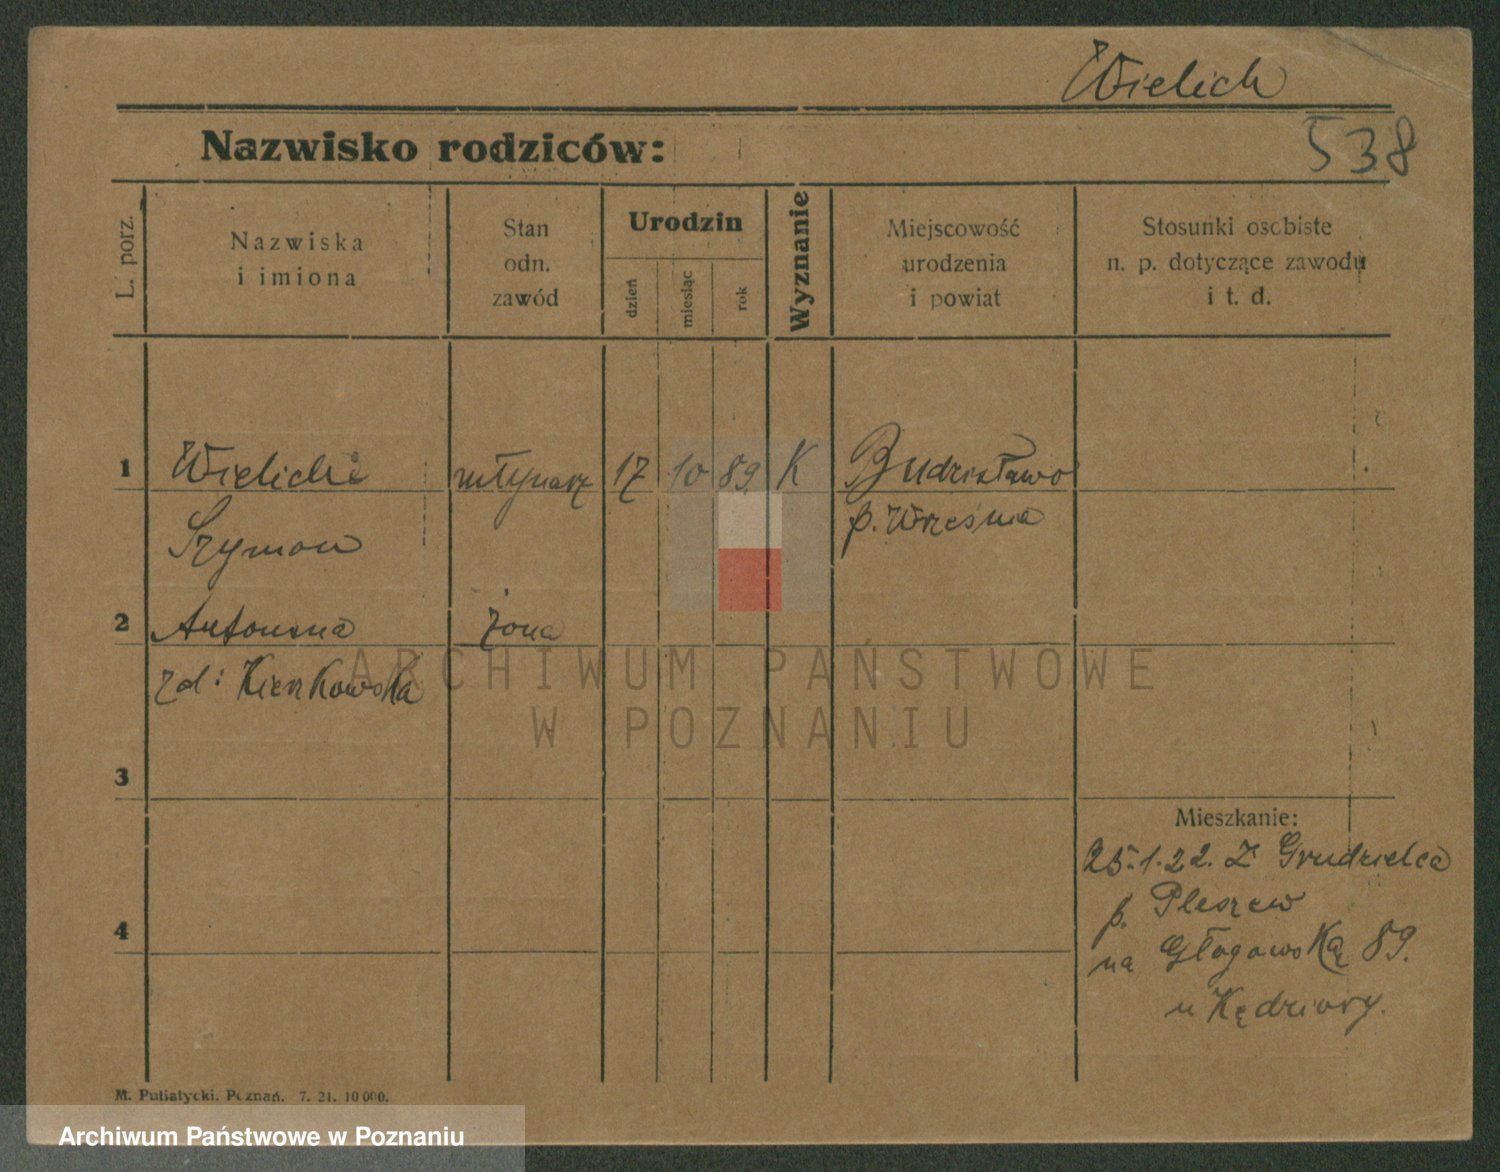 Wielich
538
Nazwisko rodziców:
L. porz.
Nazwiska
i imiona
Stan
odn.
zawód
Urodzin
dzień
miesiąc
rok
Wyznanie
Miejscowość
urodzenia
i powiat
Stosunki osobiste
n. p. dotyczące zawodu
i t. d.
1 młynarz 17 10 89 K Budzisławo
Szymon p. Września
2 Antonina żona
zd:
3
Mieszkanie:
25.1.22. Z Grudzielca
p. Pleszew
4
na Głogowską 89.
u Kędziory.
M. Putiatycki. Poznań. 7. 21. 10 000.
ARCHIWUM PAŃSTWOWE
W POZNANIU
Archiwum Państwowe w Poznaniu